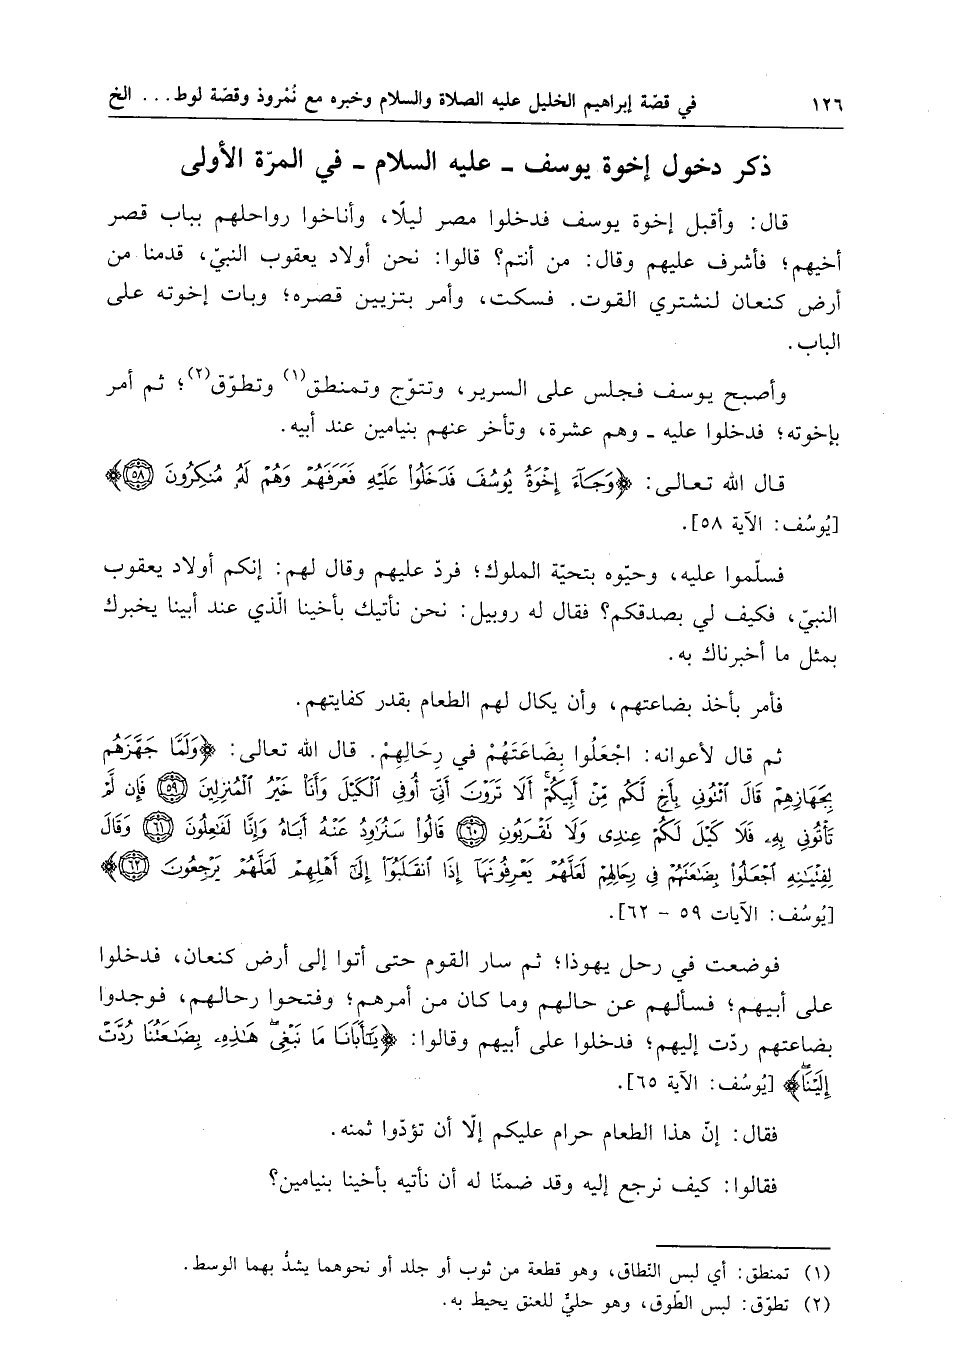 ١٢٦ في قصّة إبراهيم الخليل عليه الصلاة والسلام وخبره مع نُمْروذ وقصّة لوط... الخ
ذكر دخول إخوة يوسف - عليه السلام - في المرّة الأولى
قال: وأقبل إخوة يوسف فدخلوا مصر ليلًا، وأناخوا رواحلهم بباب قصر
أخيهم؛ فأشرف عليهم وقال: من أنتم؟ قالوا: نحن أولاد يعقوب النبيّ، قدمنا من
أرض كنعان لنشتري القوت. فسكت، وأمر بتزيين قصره؛ وبات إخوته على
الباب.
وأصبح يوسف فجلس على السرير، وتتوّج وتمنطق(١) وتطوّق(٢)؛ ثم أمر
بإخوته؛ فدخلوا عليه - وهم عشرة، وتأخر عنهم بنيامين عند أبيه.
قال الله تعالى: ﴿وَجَآءَ إِخْوَةُ يُوسُفَ فَدَخَلُواْ عَلَيْهِ فَعَرَفَهُمْ وَهُمْ لَهُۥ مُنكِرُونَ ٥٨﴾
[يُوسُف: الآية ٥٨].
فسلّموا عليه، وحيّوه بتحيّة الملوك؛ فردّ عليهم وقال لهم: إنكم أولاد يعقوب
النبيّ، فكيف لي بصدقكم؟ فقال له روبيل: نحن نأتيك بأخينا الّذي عند أبينا يخبرك
بمثل ما أخبرناك به.
فأمر بأخذ بضاعتهم، وأن يكال لهم الطعام بقدر كفايتهم.
ثم قال لأعوانه: اجْعَلُوا بِضَاعَتَهُمْ في رِحَالِهِمْ. قال الله تعالى: ﴿وَلَمَّا جَهَّزَهُم
بِجَهَازِهِمْ قَالَ ٱئْتُونِي بِأَخٍ لَّكُم مِّنْ أَبِيكُمْ أَلَا تَرَوْنَ أَنِّيٓ أُوفِي ٱلْكَيْلَ وَأَنَا۠ خَيْرُ ٱلْمُنزِلِينَ ٥٩ فَإِن لَّمْ
تَأْتُونِي بِهِۦ فَلَا كَيْلَ لَكُمْ عِندِى وَلَا تَقْرَبُونِ ٦٠ قَالُواْ سَنُرَٰوِدُ عَنْهُ أَبَاهُ وَإِنَّا لَفَٰعِلُونَ ٦١ وَقَالَ
لِفِتْيَٰنِهِ ٱجْعَلُواْ بِضَٰعَتَهُمْ فِي رِحَالِهِمْ لَعَلَّهُمْ يَعْرِفُونَهَآ إِذَا ٱنقَلَبُوٓاْ إِلَىٰٓ أَهْلِهِمْ لَعَلَّهُمْ يَرْجِعُونَ ٦٢﴾
[يُوسُف: الآيات ٥٩ - ٦٢].
فوضعت في رحل يهوذا؛ ثم سار القوم حتى أتوا إلى أرض كنعان، فدخلوا
على أبيهم؛ فسألهم عن حالهم وما كان من أمرهم؛ وفتحوا رحالهم، فوجدوا
بضاعتهم ردّت إليهم؛ فدخلوا على أبيهم وقالوا: ﴿يَٰٓأَبَانَا مَا نَبْغِي هَٰذِهِۦ بِضَٰعَتُنَا رُدَّتْ
إِلَيْنَا﴾ [يُوسُف: الآية ٦٥].
فقال: إنّ هذا الطعام حرام عليكم إلّا أن تؤدّوا ثمنه.
فقالوا: كيف نرجع إليه وقد ضمنّا له أن نأتيه بأخينا بنيامين؟
(١) تمنطق: أي لبس النّطاق، وهو قطعة من ثوب أو جلد أو نحوهما يشدُّ بهما الوسط.
(٢) تطوّق: لبس الطّوق، وهو حليٌ للعنق يحيط به.